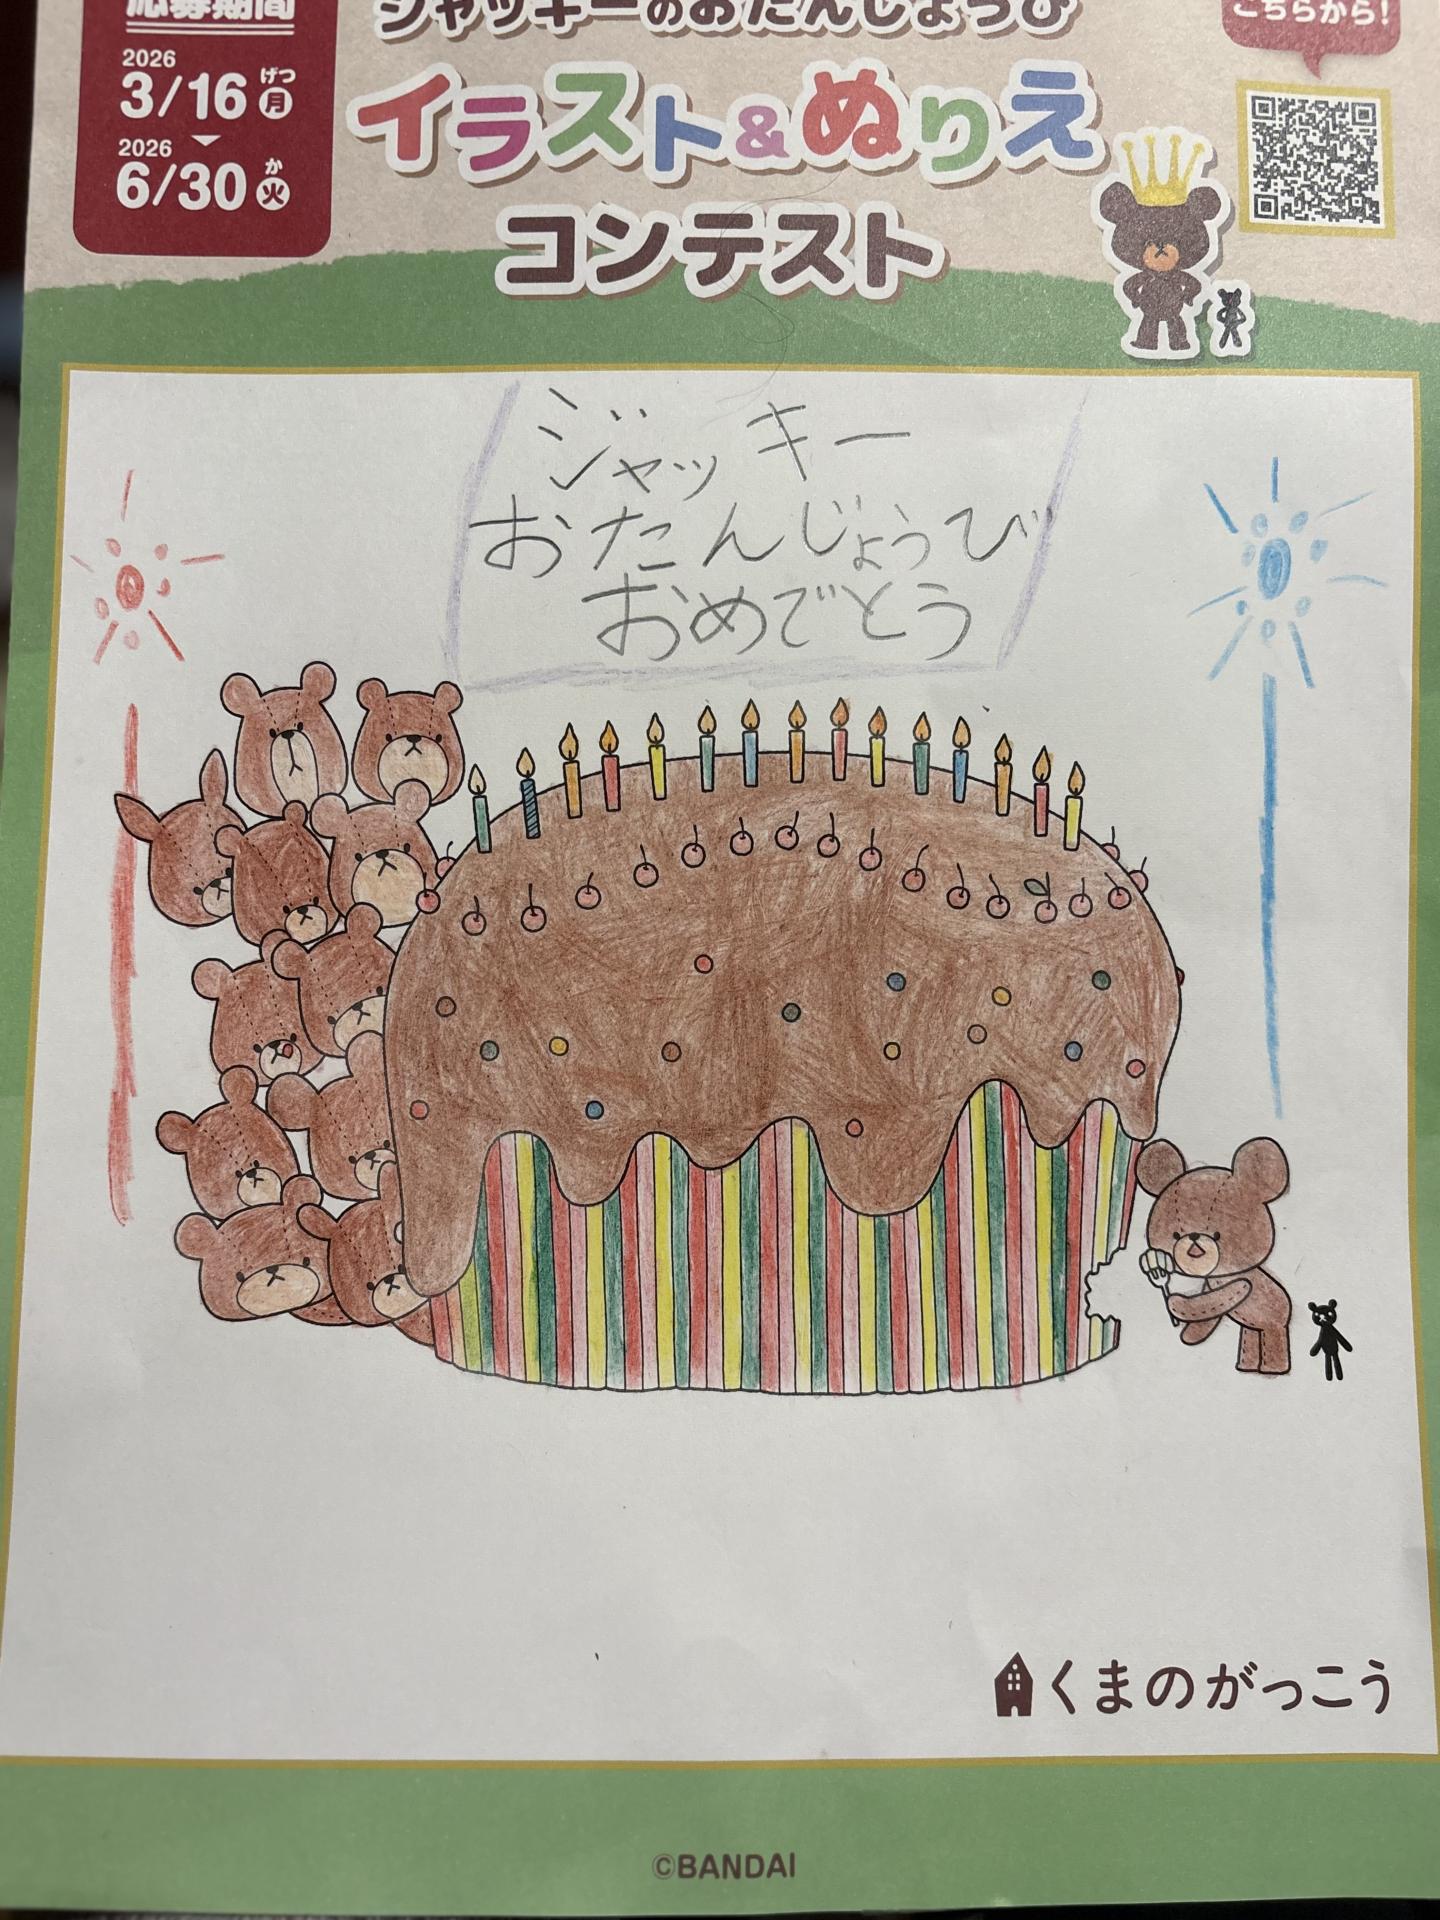 応募期間
2026
3/16 月
げつ
2026
6/30 火
か
ジャッキーのおたんじょうび
イラスト&ぬりえ
コンテスト
こちらから!
ジャッキー
おたんじょうび
おめでとう
くまのがっこう
©BANDAI